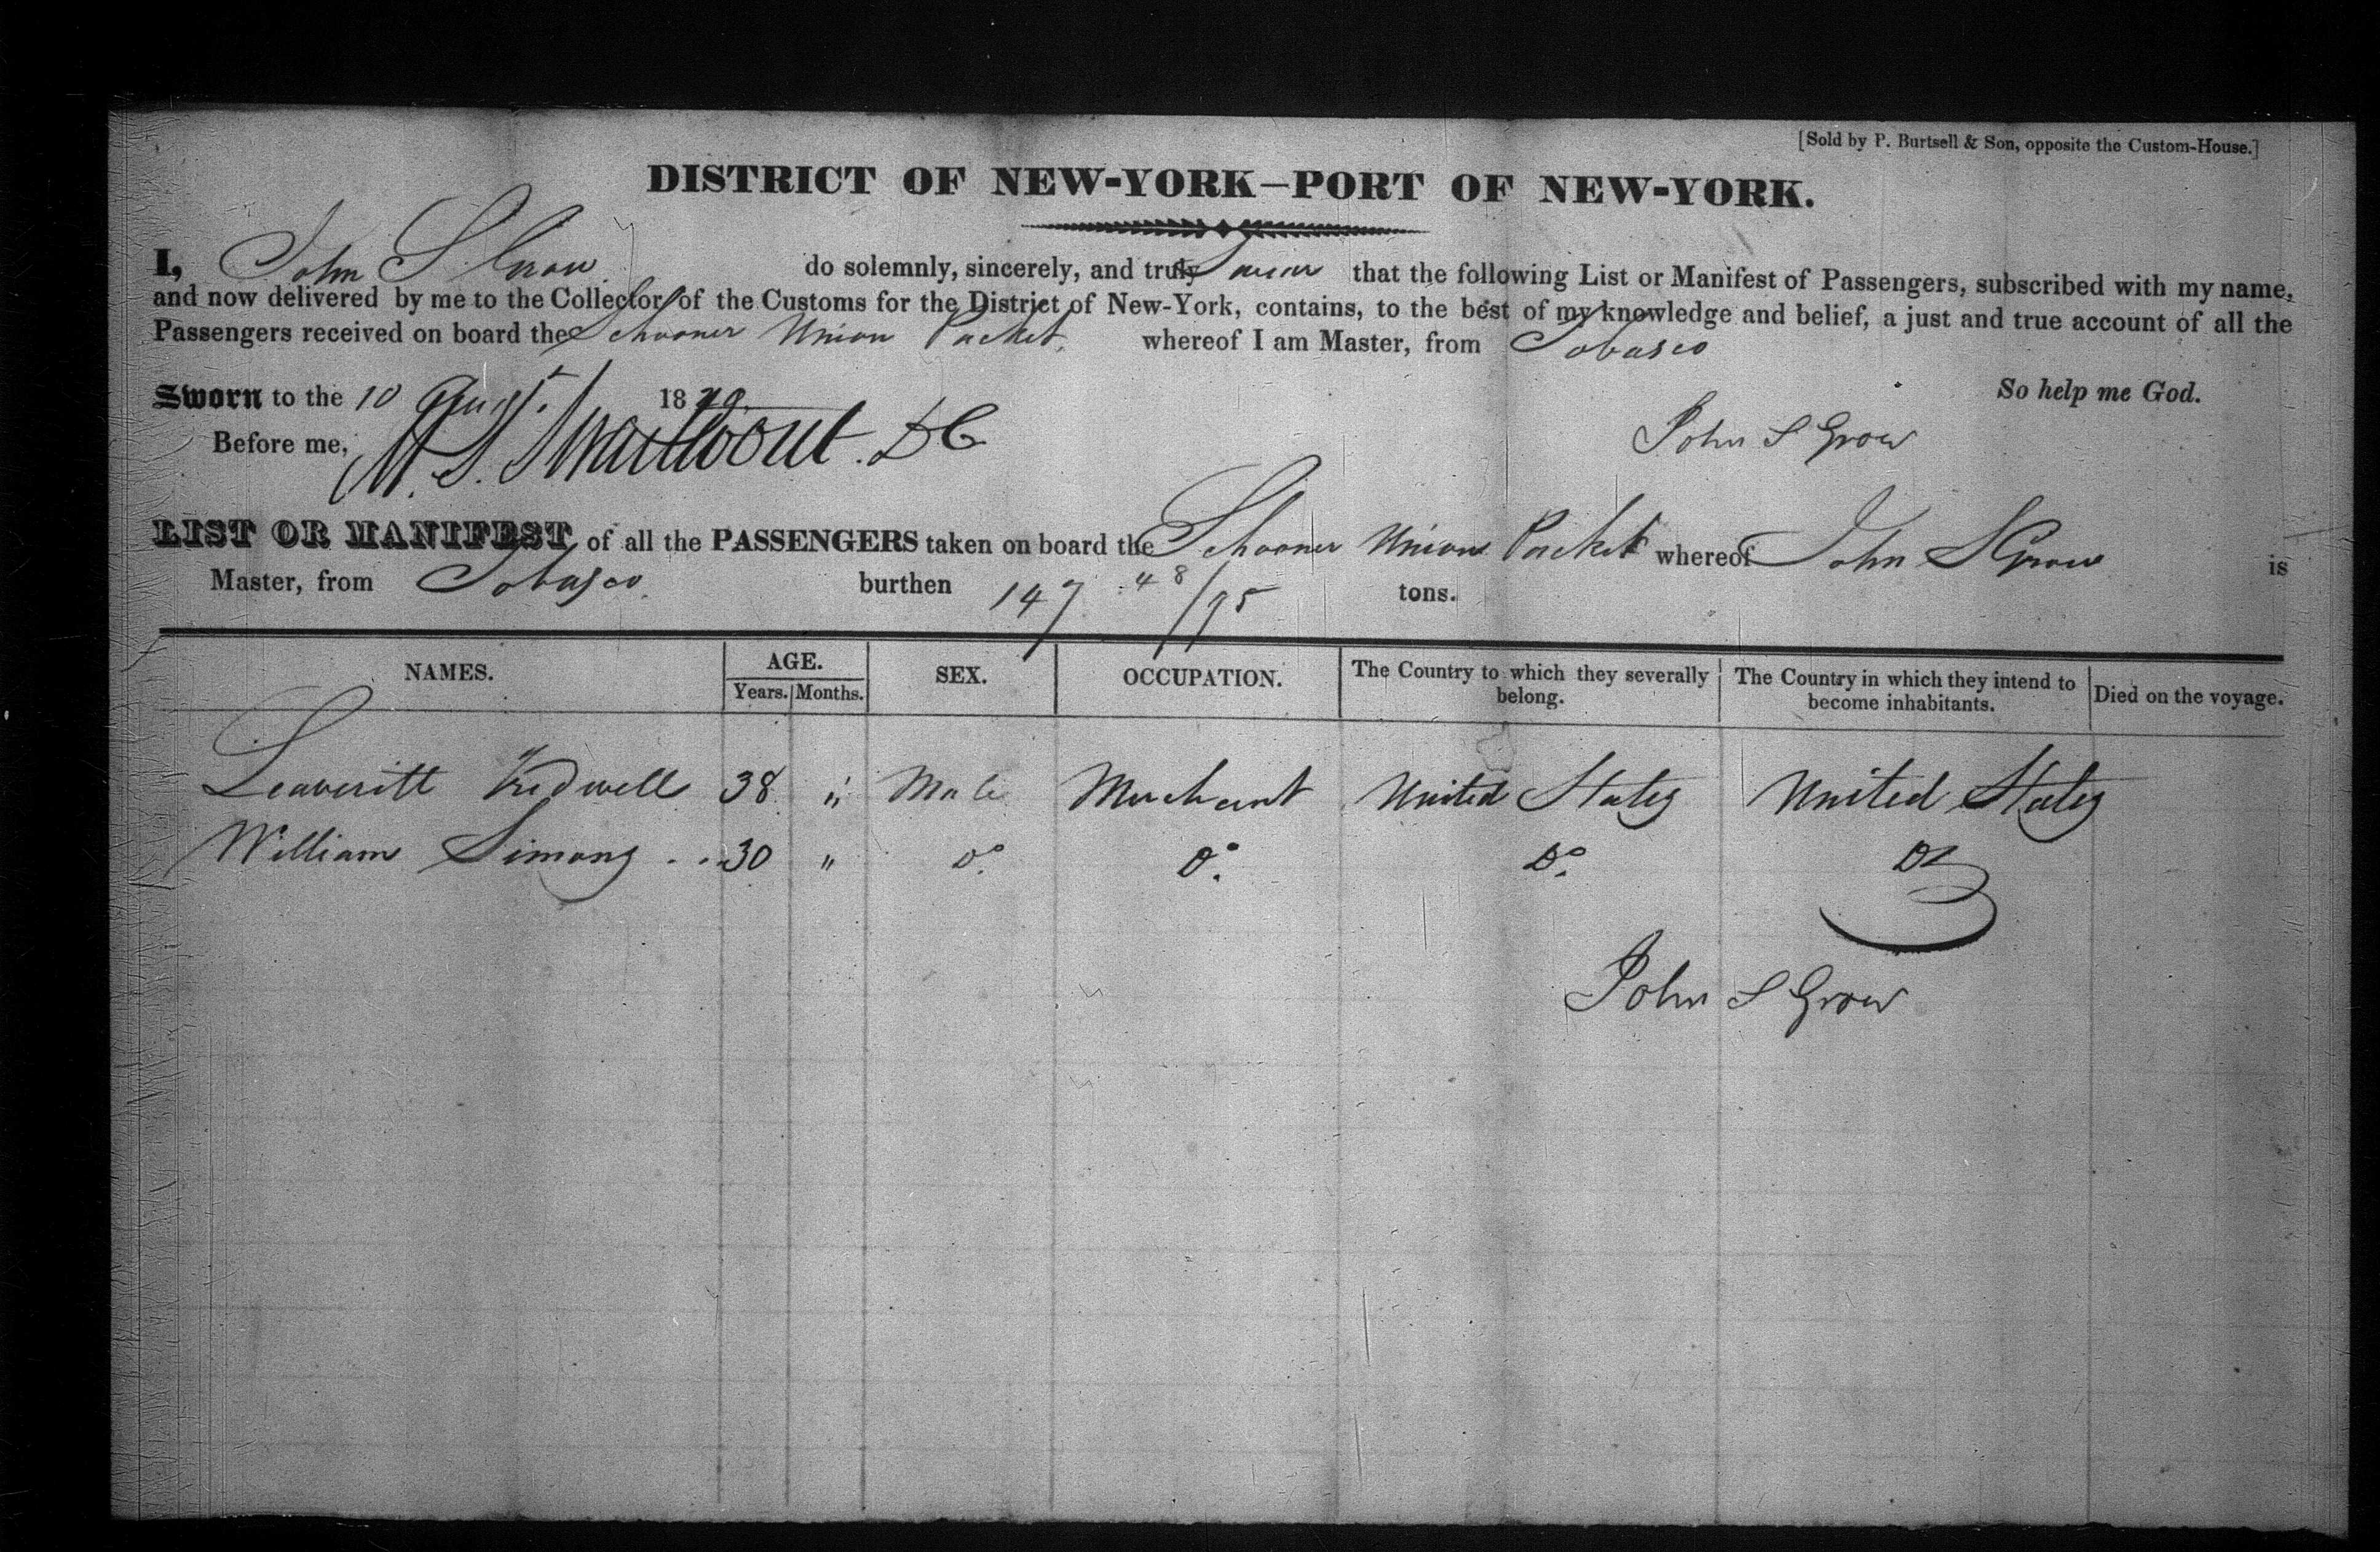 [Sold by P. Burtsell & Son, opposite the Custom-House.]
DISTRICT OF NEW-YORK—PORT OF NEW-YORK.
I, John S Grow do solemnly, sincerely, and truly Swear that the following List or Manifest of Passengers, subscribed with my name,
and now delivered by me to the Collector of the Customs for the District of New-York, contains, to the best of my knowledge and belief, a just and true account of all the
Passengers received on board the Schooner Union Packet, whereof I am Master, from Tobasco
So help me God.
Sworn to the 10 August 1829
John S Grow
Before me, Swartwout DC
LIST OR MANIFEST of all the PASSENGERS taken on board the Schooner Union Packet whereof John S Grow is
Master, from Tobasco burthen 147 48/95 tons.
NAMES. AGE. SEX. OCCUPATION. The Country to which they severally belong. The Country in which they intend to become inhabitants. Died on the voyage.
Years. Months.
Leaveritt 38 " Male Merchant United States United States
William Simons 30 " Do. Do. Do. Do
John S Grow